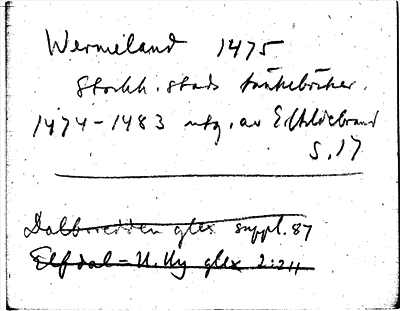 Wermeland 1475
Stockh. stads tänkeböcker.
1474-1483 utg. av E Hildebrand
S. 17
Dalbo redden glex suppl. 87
Elfdal = N. Ny glex 2:24